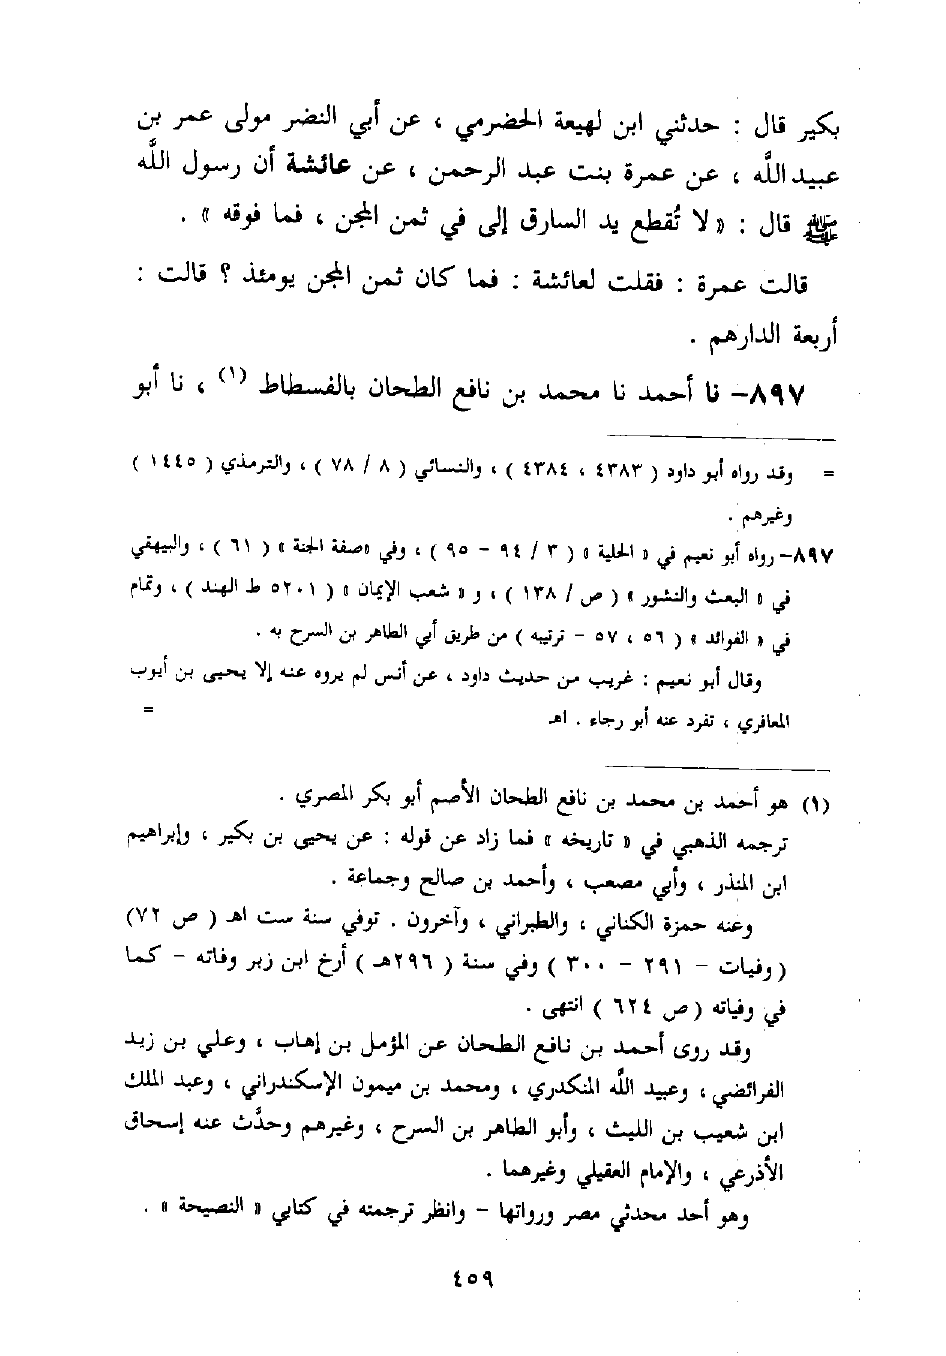 بكير قال : حدثني ابن لهيعة الحضرمي ، عن أبي النضر مولى عمر بن
عبيد الله ، عن عمرة بنت عبد الرحمن ، عن عائشة أن رسول الله
ﷺ قال : « لا تُقطع يد السارق إلى في ثمن المجن ، فما فوقه » .
قالت عمرة : فقلت لعائشة : فما كان ثمن المجن يومئذ ؟ قالت :
أربعة الدارهم .
٨٩٧- نا أحمد نا محمد بن نافع الطحان بالفسطاط (١) ، نا أبو
= وقد رواه أبو داود ( ٤٣٨٣ ، ٤٣٨٤ ) ، والنسائي ( ٨ / ٧٨ ) ، والترمذي ( ١٤٤٥ )
وغيرهم .
٨٩٧- رواه أبو نعيم في « الحلية » ( ٣ / ٩٤ - ٩٥ ) ، وفي «صفة الجنة » ( ٦١ ) ، والبيهقي
في « البعث والنشور » ( ص / ١٣٨ ) ، و « شعب الإيمان » ( ٥٢٠١ ط الهند ) ، وتمام
في « الفوائد » ( ٥٦ ، ٥٧ - ترتيبه ) من طريق أبي الطاهر بن السرح به .
وقال أبو نعيم : غريب من حديث داود ، عن أنس لم يروه عنه إلا يحيى بن أيوب
المعافري ، تفرد عنه أبو رجاء . اهـ =
(١) هو أحمد بن محمد بن نافع الطحان الأصم أبو بكر المصري .
ترجمه الذهبي في « تاريخه » فما زاد عن قوله : عن يحيى بن بكير ، وإبراهيم
ابن المنذر ، وأبي مصعب ، وأحمد بن صالح وجماعة .
وعنه حمزة الكناني ، والطبراني ، وآخرون . توفي سنة ست اهـ ( ص ٧٢)
( وفيات - ٢٩١ - ٣٠٠ ) وفي سنة ( ٢٩٦هـ ) أرخ ابن زبر وفاته - كما
في وفياته ( ص ٦٢٤ ) انتهى .
وقد روى أحمد بن نافع الطحان عن المؤمل بن إهاب ، وعلي بن زيد
الفرائضي ، وعبيد الله المنكدري ، ومحمد بن ميمون الإسكندراني ، وعبد الملك
ابن شعيب بن الليث ، وأبو الطاهر بن السرح ، وغيرهم وحدَّث عنه إسحاق
الأذرعي ، والإمام العقيلي وغيرهما .
وهو أحد محدثي مصر ورواتها - وانظر ترجمته في كتابي « النصيحة » .
٤٥٩